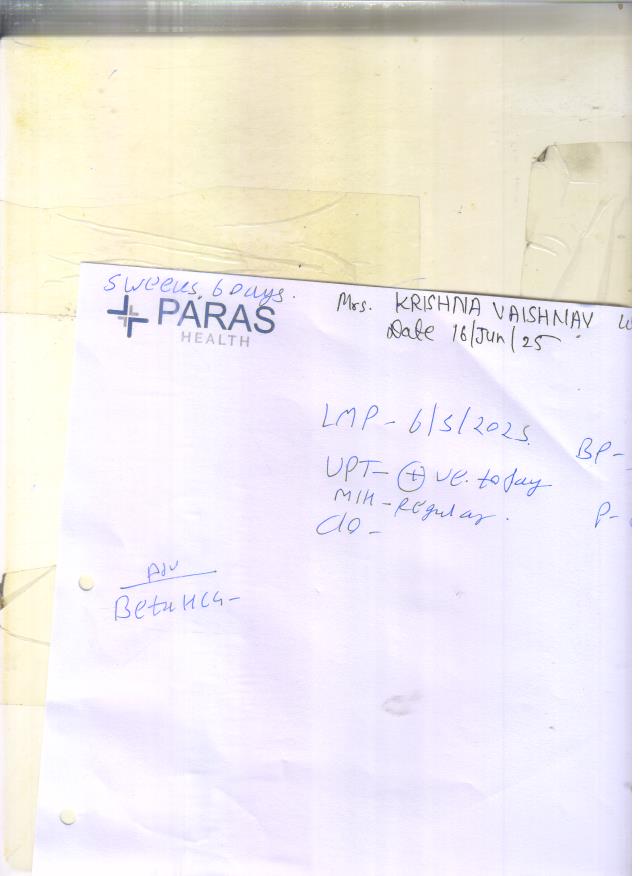 5 weeks, 6 Days.
PARAS
HEALTH
Mrs. KRISHNA VAISHNAV
Date 16/Jun/25
LMP - 6/5/2025. BP -
UPT - + ve. today
M/H - Regular. P -
C/O -
Adv
Beta HCG -